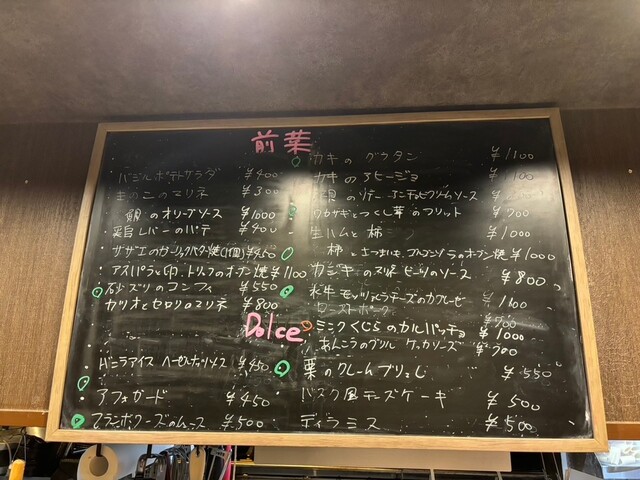 前菜
バジルポテトサラダ ¥400
きのこのマリネ ¥300
鯛のオリーブソース ¥1000
鶏白レバーのパテ ¥400
サザエのガーリックバター焼(1個) ¥450
アスパラと卵、トリュフのオーブン焼 ¥1100
砂ズリのコンフィ ¥550
カツオとセロリのマリネ ¥800
カキのグラタン ¥1100
カキのアヒージョ
のソテー アンチョビクリームソース
ワカサギとつくし芋のフリット ¥700
生ハムと柿 ¥1000
柿とさつまいも、ゴルゴンゾーラのオーブン焼 ¥1000
カジキのマリネ ビーツのソース ¥800
水牛モッツァレラチーズのカプレーゼ ¥1100
ローストポーク ¥900
ミンククジラのカルパッチョ ¥1000
あんこうのグリル ケッカソース ¥900
Dolce
バニラアイス ヘーゼルナッツソース ¥450
アフォガード ¥450
フランボワーズのムース ¥500
栗のクレームブリュレ ¥550
バスク風チーズケーキ ¥500
ティラミス ¥500